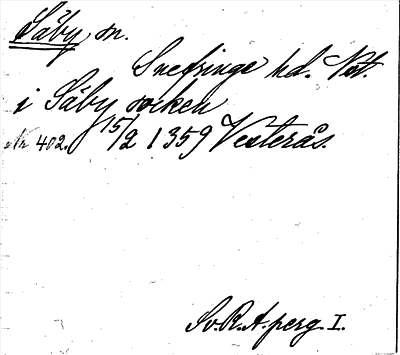 Säby sn.
Snefringe hd. Vstl.
i Säby socken
Nr 402. 15/2 1359 Vesterås.
Sv. R. A. perg. I.